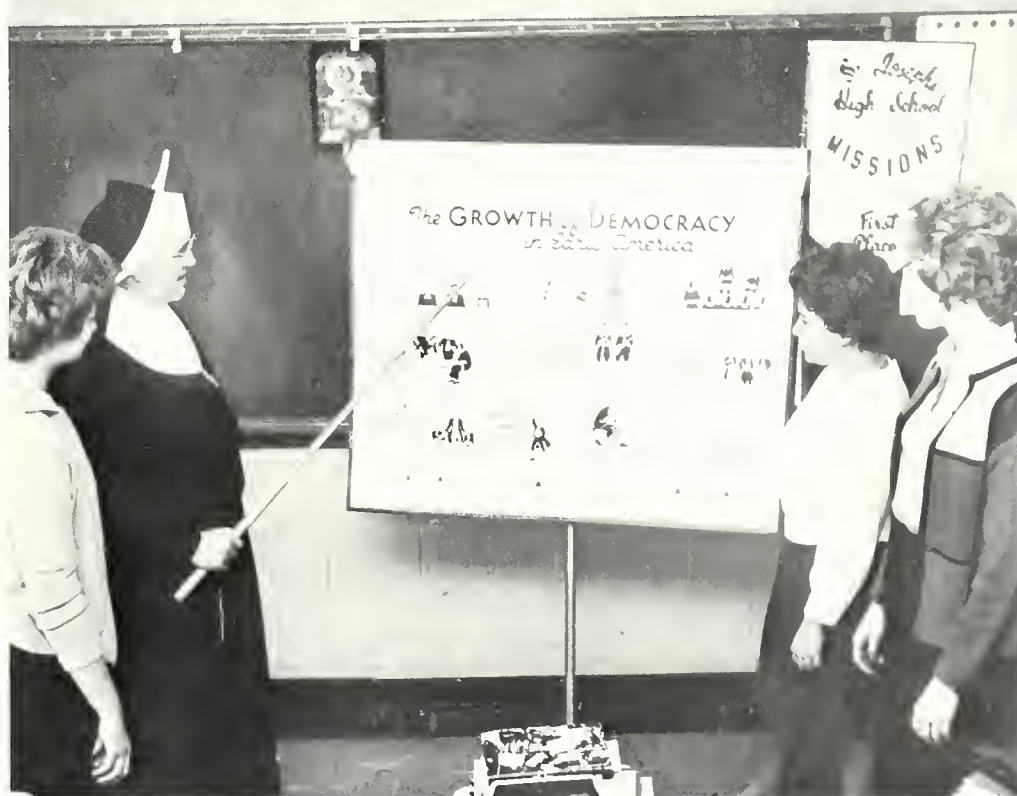 The GROWTH of DEMOCRACY
in Early America
St. Joseph's
High School
MISSIONS
First
Place